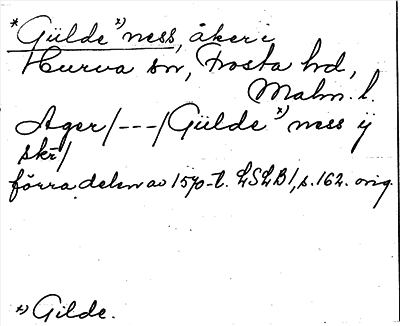 *Gülde*) ness, åker i
Hurva sn, Frosta hd,
Malm. l.
Ager/---/Gülde*) ness ÿ
skr/
förra delen av 1570-t. LSLB1, s. 162. orig.
*) Gilde.